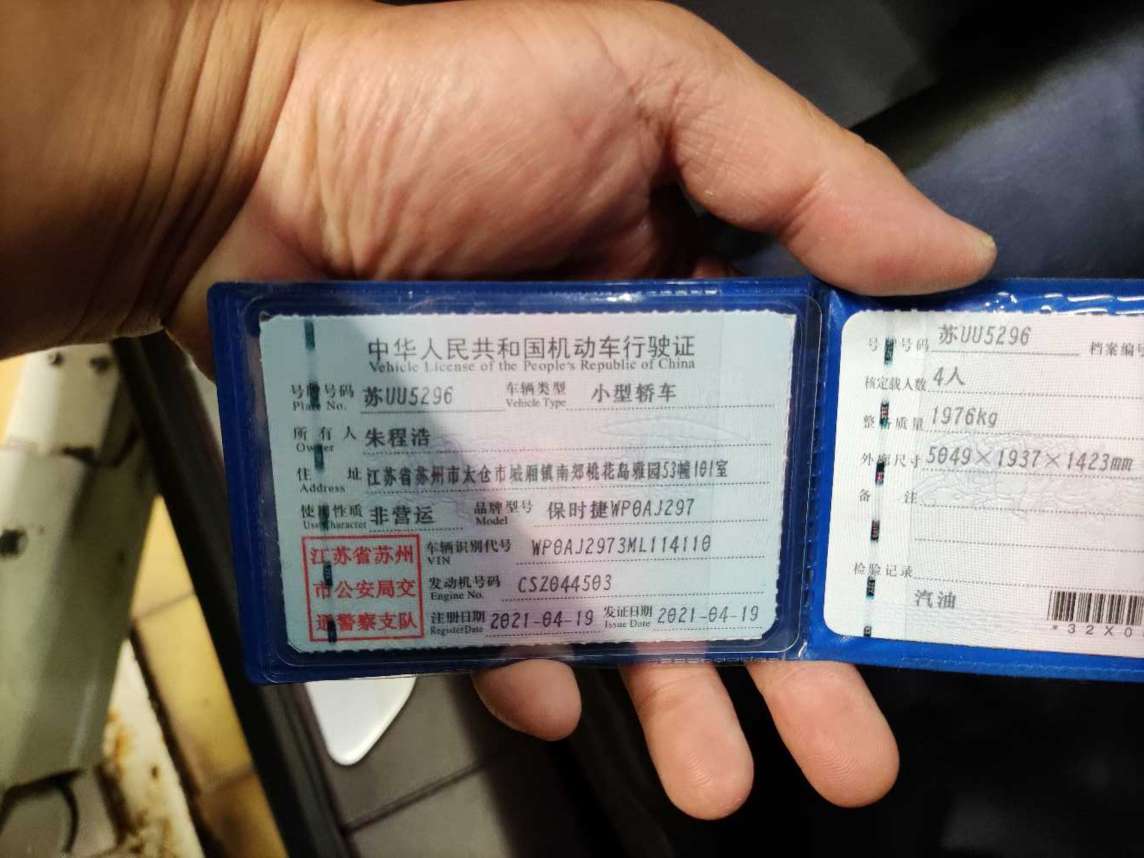 中华人民共和国机动车行驶证
Vehicle License of the People's Republic of China
号牌号码 苏UU5296 车辆类型 小型轿车
Plate No. Vehicle Type
所有人 朱程浩
Owner
住址 江苏省苏州市太仓市城厢镇南郊桃花岛雅园53幢101室
Address
使用性质 非营运 品牌型号 保时捷WP0AJ297
Use Character Model
江苏省苏州
市公安局交
通警察支队
车辆识别代号 WP0AJ2973ML114110
VIN
发动机号码 CSZ044503
Engine No.
注册日期 2021-04-19 发证日期 2021-04-19
Register Date Issue Date
号牌号码 苏UU5296 档案编号
核定载人数 4人
整备质量 1976kg
外廓尺寸 5049×1937×1423mm
备注
检验记录
汽油
*32X0